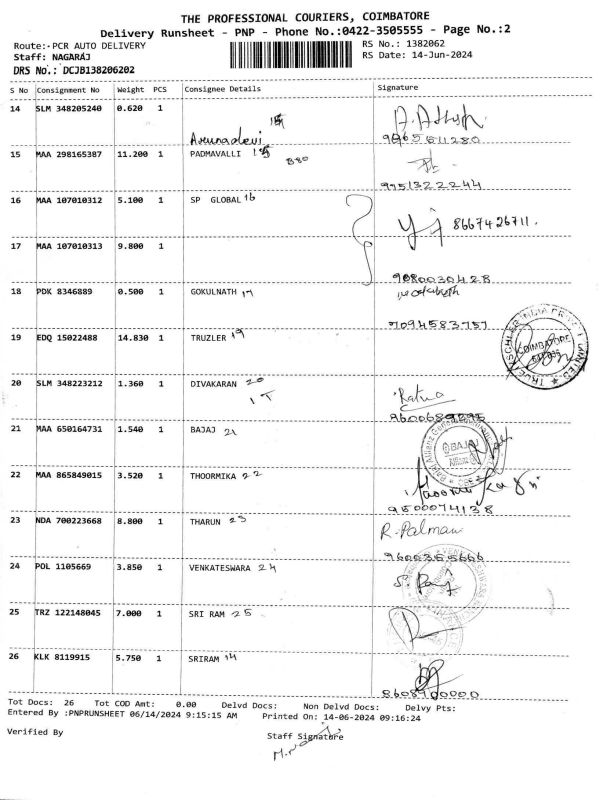 THE PROFESSIONAL COURIERS, COIMBATORE
Delivery Runsheet - PNP - Phone No.:0422-3505555 - Page No.:2
Route:-PCR AUTO DELIVERY RS No.: 1382062
Staff: NAGARAJ RS Date: 14-Jun-2024
DRS No.: DCJB138206202
S No Consignment No Weight PCS Consignee Details Signature
14 SLM 348205240 0.620 1
Arunadevi
15 MAA 298165387 11.200 1 PADMAVALLI
9951322244
16 MAA 107010312 5.100 1 SP GLOBAL 16
8667426711.
17 MAA 107010313 9.800 1
9080030428
18 PDK 8346889 0.500 1 GOKULNATH 17
7094583757
19 EDQ 15022488 14.830 1 TRUZLER 19
COIMBATORE
20 SLM 348223212 1.360 1 DIVAKARAN 20
Ratna
21 MAA 650164731 1.540 1 BAJAJ 21
BAJAJ
22 MAA 865849015 3.520 1 THOORMIKA 22
9500074138
23 NDA 700223668 8.800 1 THARUN 23
R. Palman
9600355666
24 POL 1105669 3.850 1 VENKATESWARA 24
25 TRZ 122148045 7.000 1 SRI RAM 25
26 KLK 8119915 5.750 1 SRIRAM 14
Tot Docs: 26 Tot COD Amt: 0.00 Delvd Docs: Non Delvd Docs: Delvy Pts:
Entered By :PNPRUNSHEET 06/14/2024 9:15:15 AM Printed On: 14-06-2024 09:16:24
Verified By Staff Signature